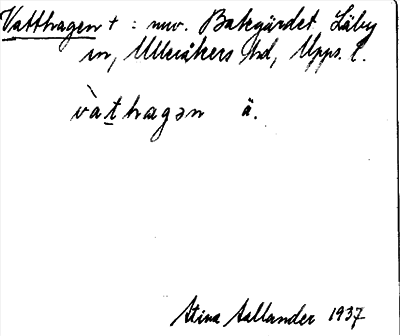 Vatthagen + : nuv. Bakgärdet Läby
sn, Ulleråkers hd, Upps. l.
v̀at̲hagən ä.
Stina Aallander 1937